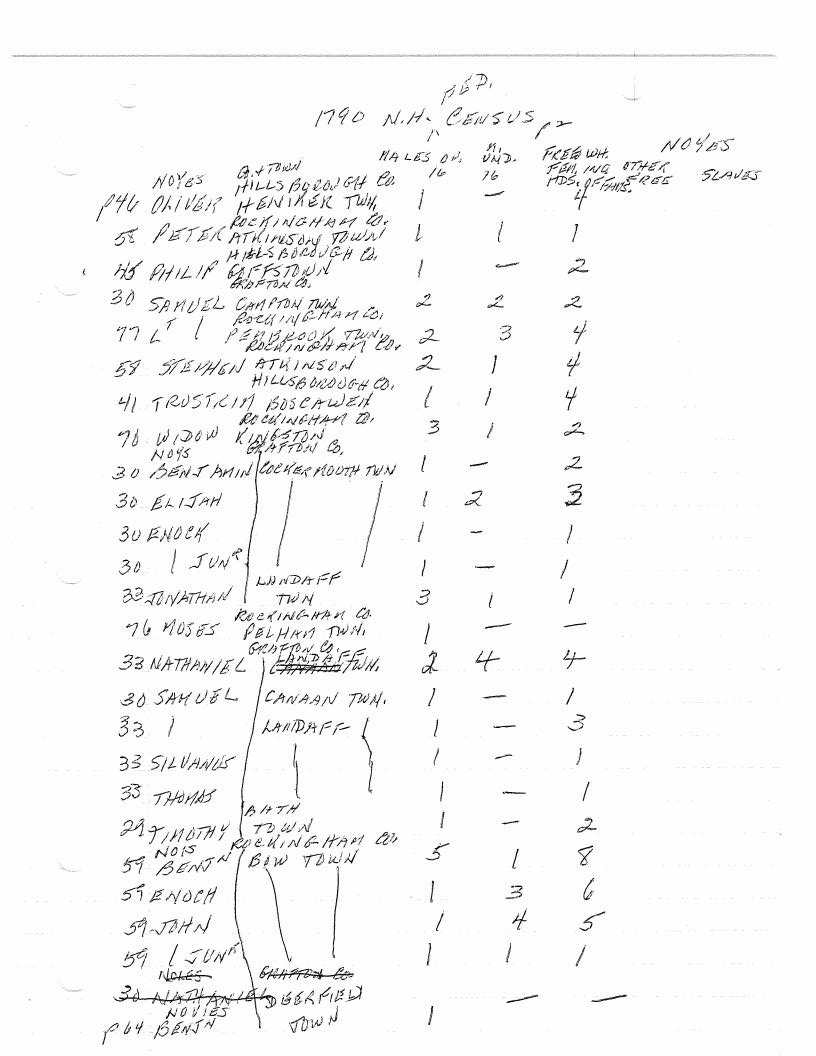 FED.
1790 N.H. CENSUS p2
NOYES
NOYES CO. + TOWN MALES OV. 16 M. UND. 16 FREE WH. FEM. ING OTHER SLAVES
HDS. OF FAMS. FREE
HILLSBOROUGH CO.
P46 OLIVER HENIKER TWN. 1 — 4
ROCKINGHAM CO.
58 PETER ATKINSON TOWN 1 1 1
HILLSBOROUGH CO.
45 PHILIP GOFFSTOWN 1 — 2
GRAFTON CO.
30 SAMUEL CAMPTON TWN. 2 2 2
ROCKINGHAM CO.
77 LT PEMBROOK TWN. 2 3 4
ROCKINGHAM CO.
58 STEPHEN ATKINSON 2 1 4
HILLSBOROUGH CO.
41 TRUSTRIM BOSCAWEN 1 1 4
ROCKINGHAM CO.
70 WIDOW KINGSTON 3 1 2
NOYS GRAFTON CO.
30 BENJAMIN COCKERMOUTH TWN 1 — 2
30 ELIJAH 1 2 3
30 ENOCK 1 - 1
30 " JUNR 1 — 1
LANDAFF
33 JONATHAN TWN 3 1 1
ROCKINGHAM CO.
76 MOSES PELHAM TWN. 1 — —
GRAFTON CO.
LANDAFF
33 NATHANIEL CANAAN TWN. 2 4 4
30 SAMUEL CANAAN TWN. 1 — 1
33 " LANDAFF 1 — 3
33 SILVANUS 1 — 1
33 THOMAS 1 — 1
BATH
29 TIMOTHY TOWN 1 — 2
NOIS ROCKINGHAM CO.
59 BENJN BOW TOWN 5 1 8
59 ENOCH 1 3 6
59 JOHN 1 4 5
59 " JUNR 1 1 1
NOLES GRAFTON CO
30 NATHANIEL DEERFIELD
NOVIES
P64 BENJN TOWN 1 — —